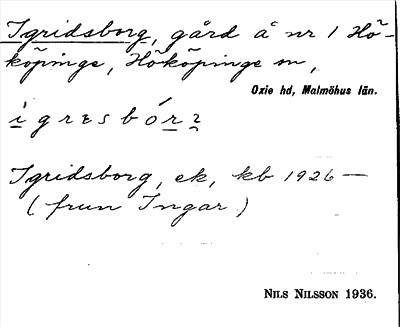 Igridsborg, gård å nr 1 Hö-
köpinge, Hököpinge sn,
Oxie hd, Malmöhus län.
i g r ɛ s b ó r ɂ
Igridsborg, ek, kb 1926 —
( frun Ingar )
NILS NILSSON 1936.